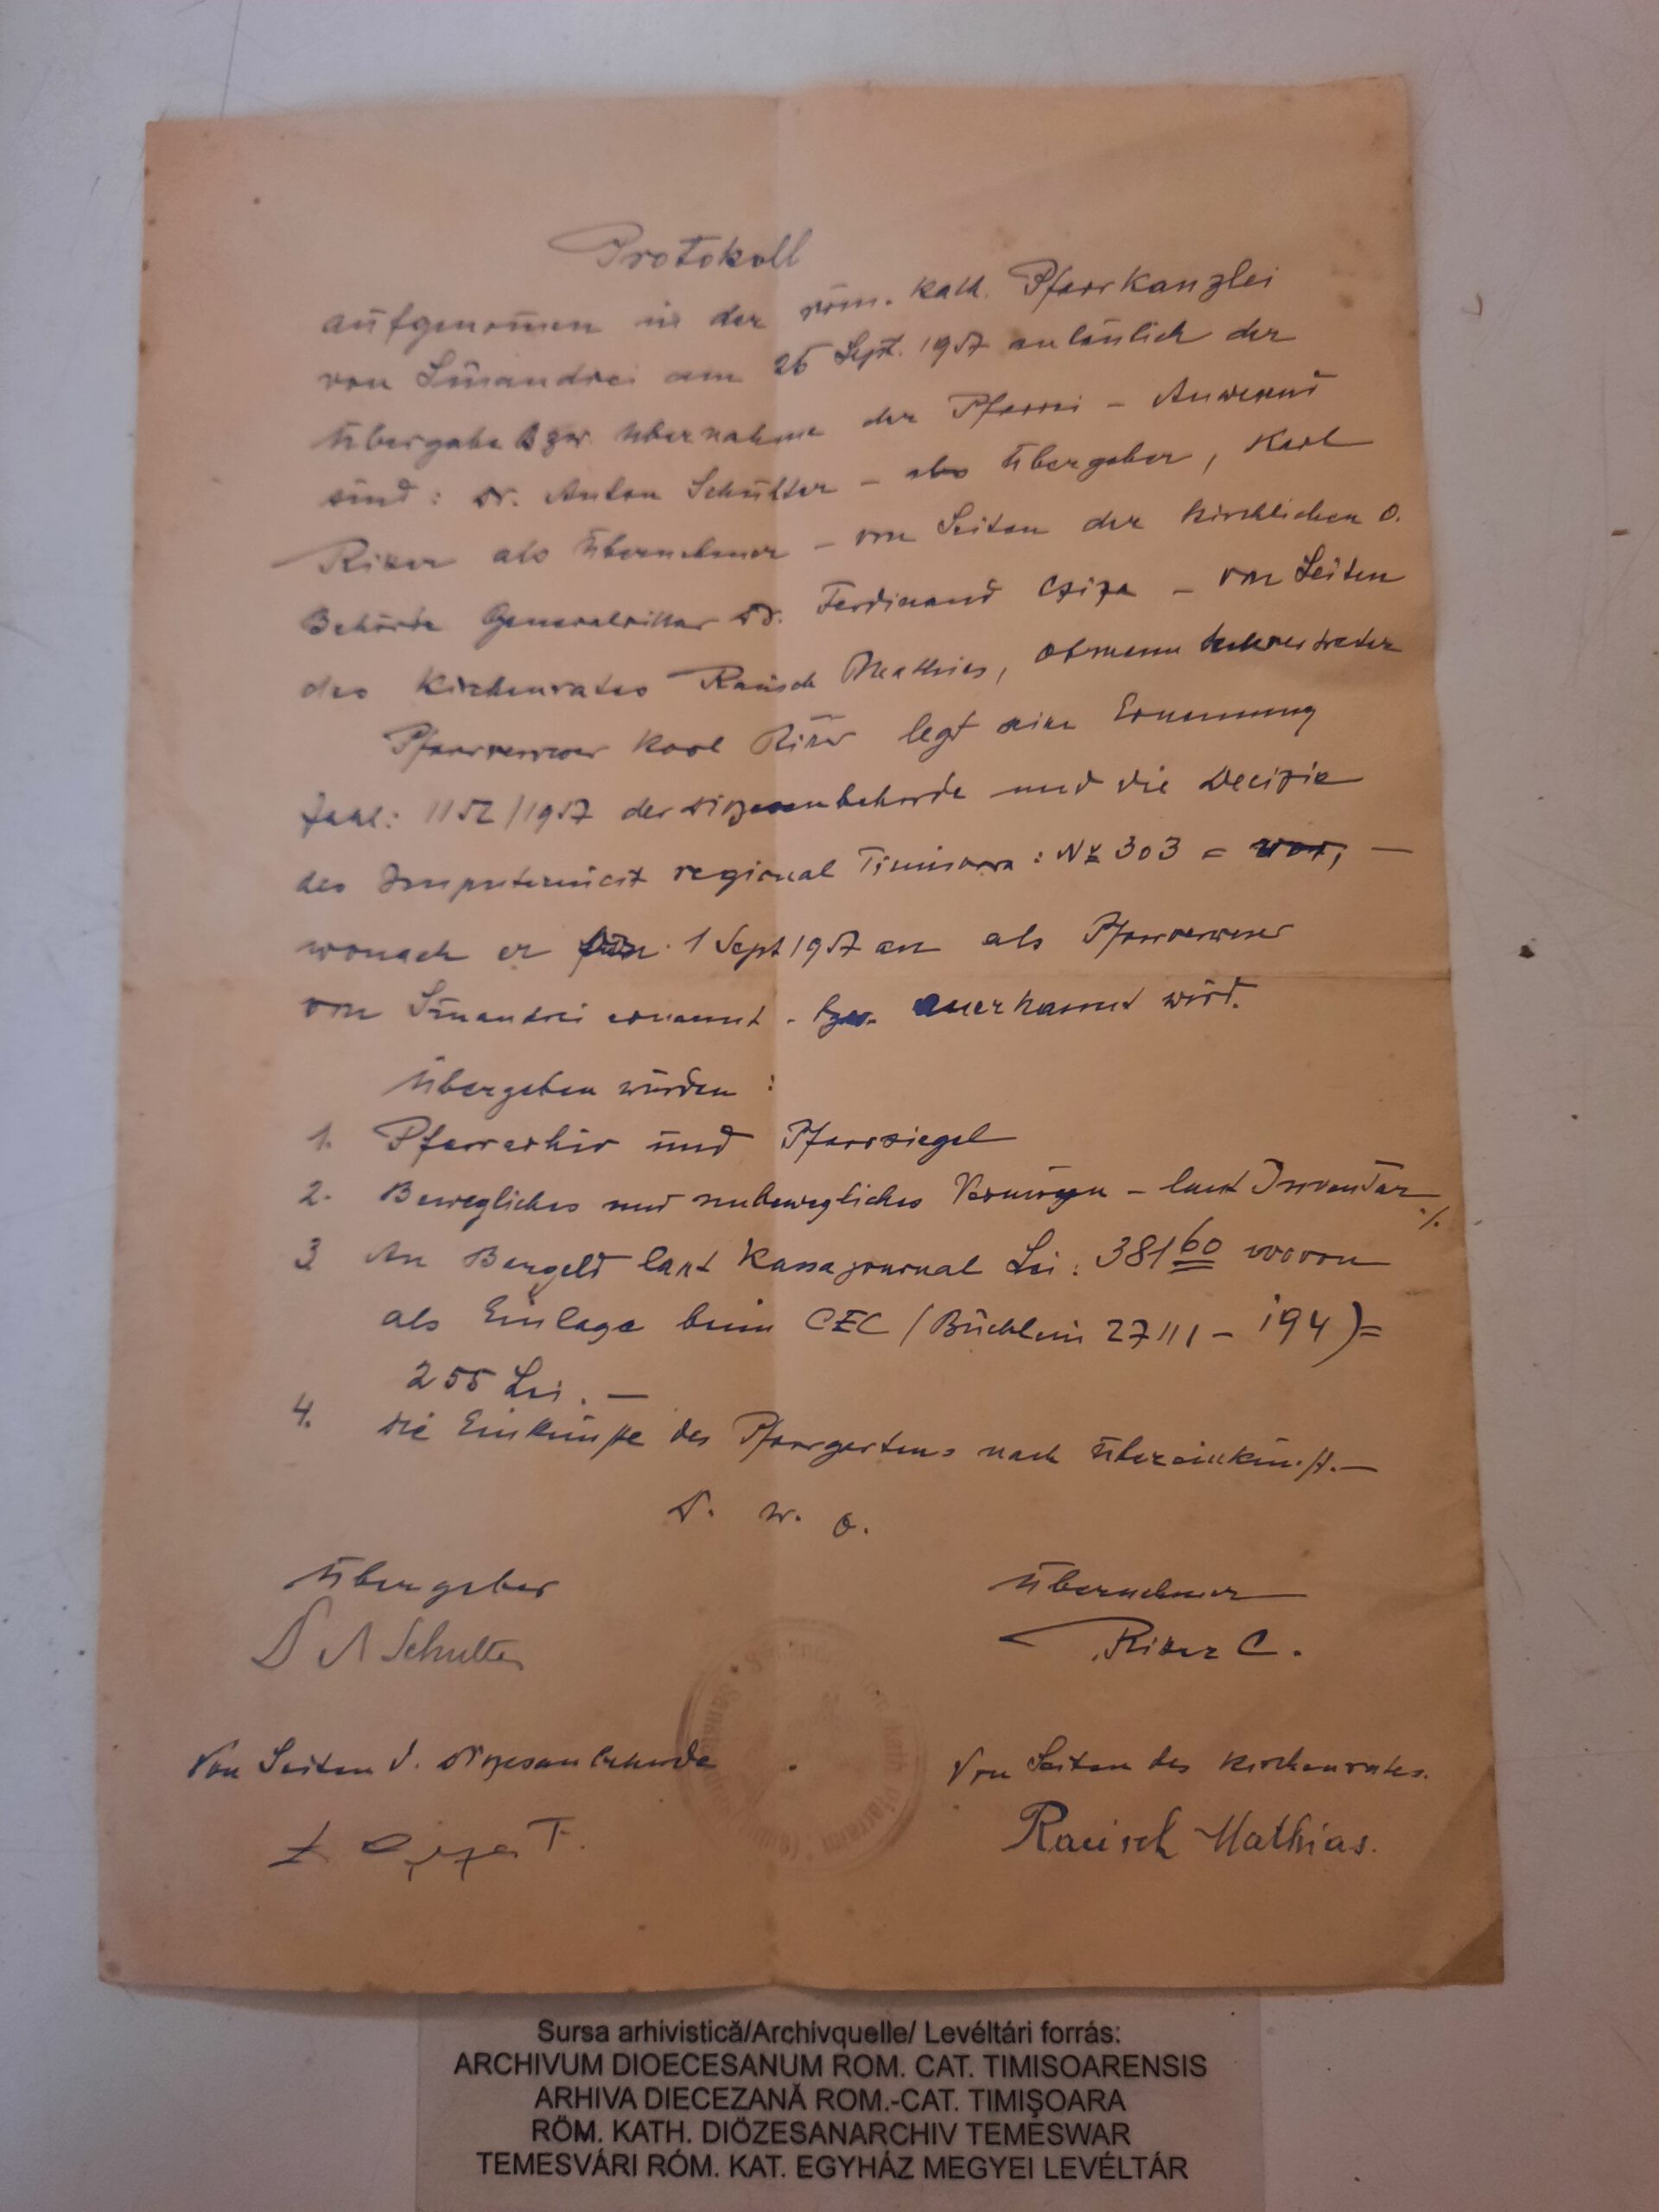 Protokoll
aufgenom̅en in der röm. kath. Pfarrkanzlei
von Sînandrei am 26 Sept. 1957 anläßlich der
Übergabe bzw. Übernahme der Pfarrei – Anwesend
sind: Dr. Anton Schulter – als Übergeber, Karl
Riser als Übernehmer – von Seiten der kirchlichen O.
Behörde Generalvikar Dr. Ferdinand Cziza – von Seiten
des Kirchenrates Rausch Mathias, Obmann
Pfarrverweser Karl Riser legt seine Ernennung
Zahl: 1152/1957 der Diözesanbehörde und die Decizie
des Imputernicit regional Timisoara: No 303 = vor, —
wonach er 1 Sept 1957 an als Pfarrverweser
von Sînandrei ernannt - bzw. anerkannt wird.
Übergeben wurden:
1. Pfarrarhiv und Pfarrsiegel
2. Bewegliches und unbewegliches Vermögen – laut Inventar ./.
3 An Bargeld laut Kassajournal Lei: 381 60 wovon
als Einlage beim CEC (Büchlein 27111 – 194) =
255 Lei. —
4. Die Einkünfte des Pfarrgartens nach Übereinkunft. —
D. w. o.
Übergeber
Übernehmer
D A Schulter
Riser C.
Von Seiten d. Diözesanbehörde
Von Seiten des Kirchenrates.
Cziza F.
Rausch Mathias.
Sursa arhivistică/Archivquelle/ Levéltári forrás:
ARCHIVUM DIOECESANUM ROM. CAT. TIMISOARENSIS
ARHIVA DIECEZANĂ ROM.-CAT. TIMIŞOARA
RÖM. KATH. DIÖZESANARCHIV TEMESWAR
TEMESVÁRI RÓM. KAT. EGYHÁZ MEGYEI LEVÉLTÁR